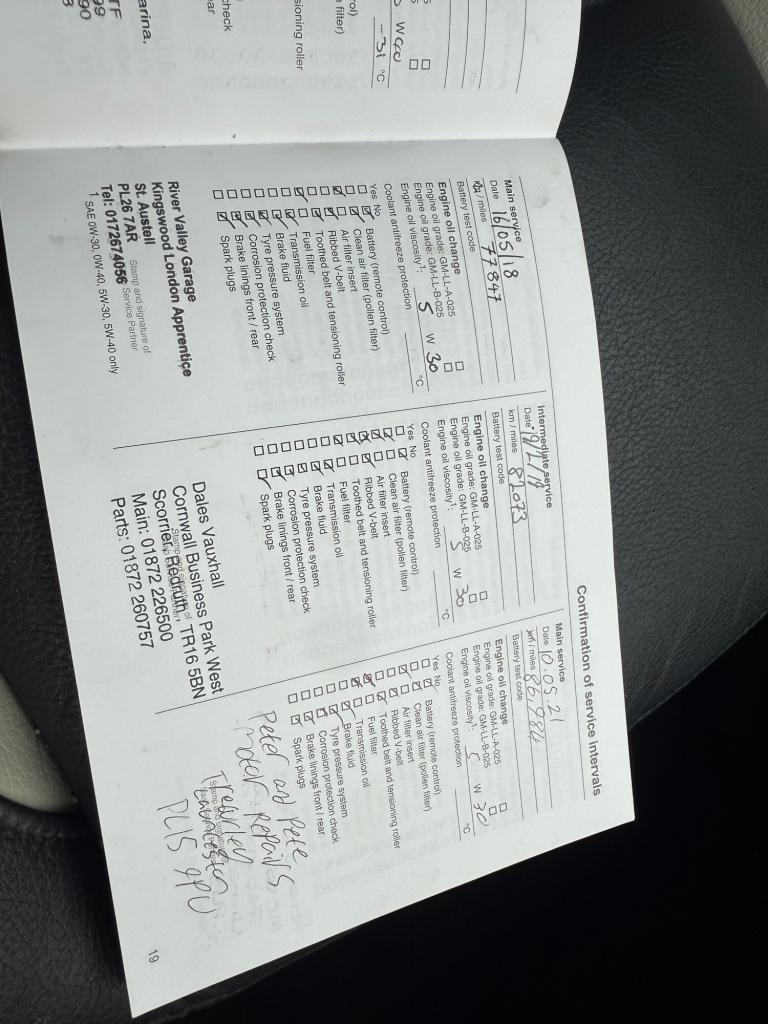 Confirmation of service intervals
Main service
Date 16/05/18
km / miles 77847
Battery test code
Engine oil change
Engine oil grade: GM-LL-A-025
Engine oil grade: GM-LL-B-025
Engine oil viscosity¹: 5 W 30
Coolant antifreeze protection °C
Yes No
Battery (remote control)
Clean air filter (pollen filter)
Air filter insert
Ribbed V-belt
Toothed belt and tensioning roller
Fuel filter
Transmission oil
Brake fluid
Tyre pressure system
Corrosion protection check
Brake linings front / rear
Spark plugs
River Valley Garage
Kingswood London Apprentice
St. Austell
PL26 7AR
Tel: 01726 74056
Stamp and signature of
Service Partner
1 SAE 0W-30, 0W-40, 5W-30, 5W-40 only
Intermediate service
Date 19/2/19
km / miles 82073
Battery test code
Engine oil change
Engine oil grade: GM-LL-A-025
Engine oil grade: GM-LL-B-025
Engine oil viscosity¹: 5 W 30
Coolant antifreeze protection °C
Yes No
Battery (remote control)
Clean air filter (pollen filter)
Air filter insert
Ribbed V-belt
Toothed belt and tensioning roller
Fuel filter
Transmission oil
Brake fluid
Tyre pressure system
Corrosion protection check
Brake linings front / rear
Spark plugs
Dales Vauxhall
Cornwall Business Park West
Scorrier Redruth TR16 5BN
Main: 01872 226500
Parts: 01872 260757
Main service
Date 10.05.21
km / miles 86984
Battery test code
Engine oil change
Engine oil grade: GM-LL-A-025
Engine oil grade: GM-LL-B-025
Engine oil viscosity¹: 5 W 30
Coolant antifreeze protection °C
Yes No
Battery (remote control)
Clean air filter (pollen filter)
Air filter insert
Ribbed V-belt
Toothed belt and tensioning roller
Fuel filter
Transmission oil
Brake fluid
Tyre pressure system
Corrosion protection check
Brake linings front / rear
Spark plugs
Peter and Pete
Motor Repairs
Trewellen
PL15
19
-31 °C
filter)
sioning roller
check
arina,